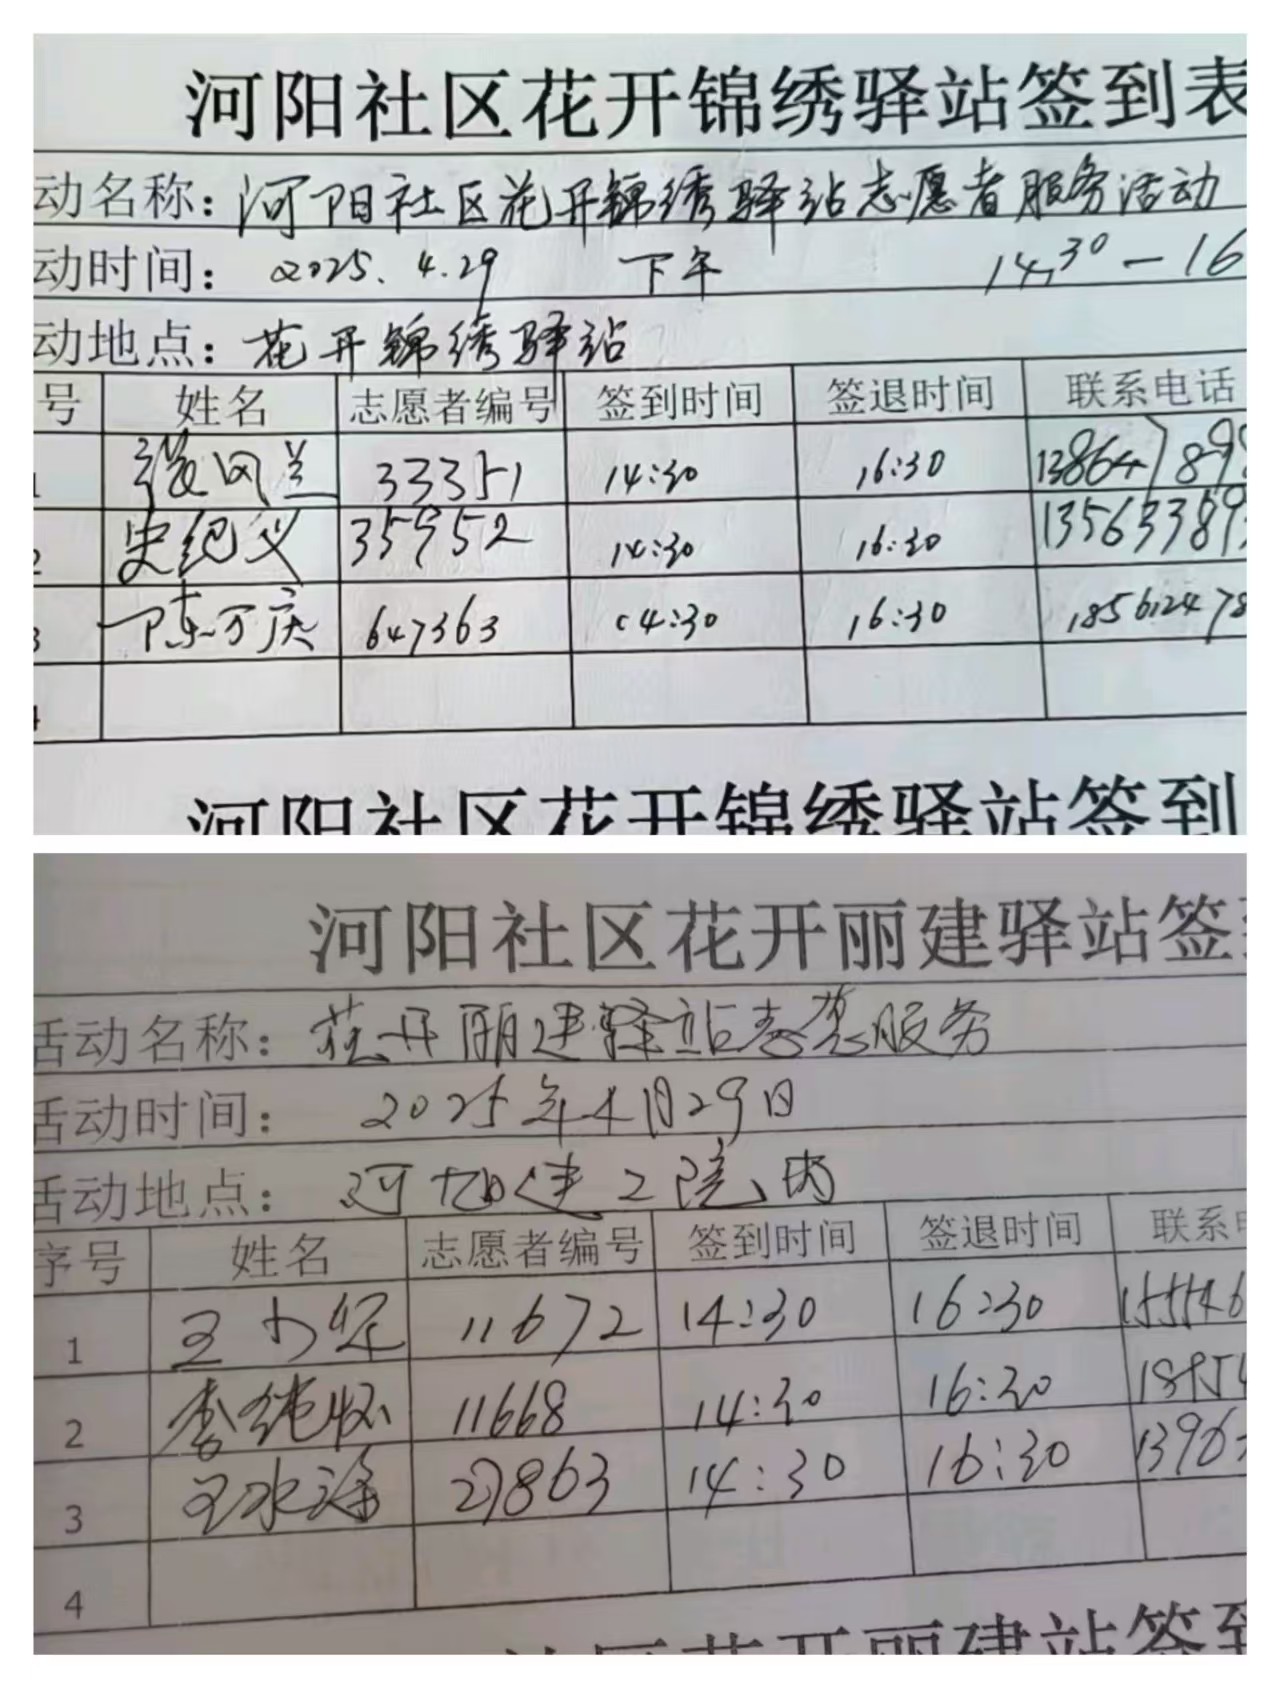 河阳社区花开锦绣驿站签到表
动名称：河阳社区花开锦绣驿站志愿者服务活动
动时间：2025.4.29 下午 14:30－16
动地点：花开锦绣驿站
号 姓名 志愿者编号 签到时间 签退时间 联系电话
1 张风兰 33351 14:30 16:30 138647898
2 史纪义 35952 14:30 16:30 13563389
3 陈万庆 647363 14:30 16:30 185612478
4
河阳社区花开锦绣驿站签到
河阳社区花开丽建驿站签到
活动名称：花开丽建驿站志愿服务
活动时间：2025年4月29日
活动地点：河阳建工院内
序号 姓名 志愿者编号 签到时间 签退时间 联系电
1 王 11672 14:30 16:30 155546
2 李纯怀 11668 14:30 16:30 18854
3 王水涤 27863 14:30 16:30 1396
4
社区花开丽建站签到